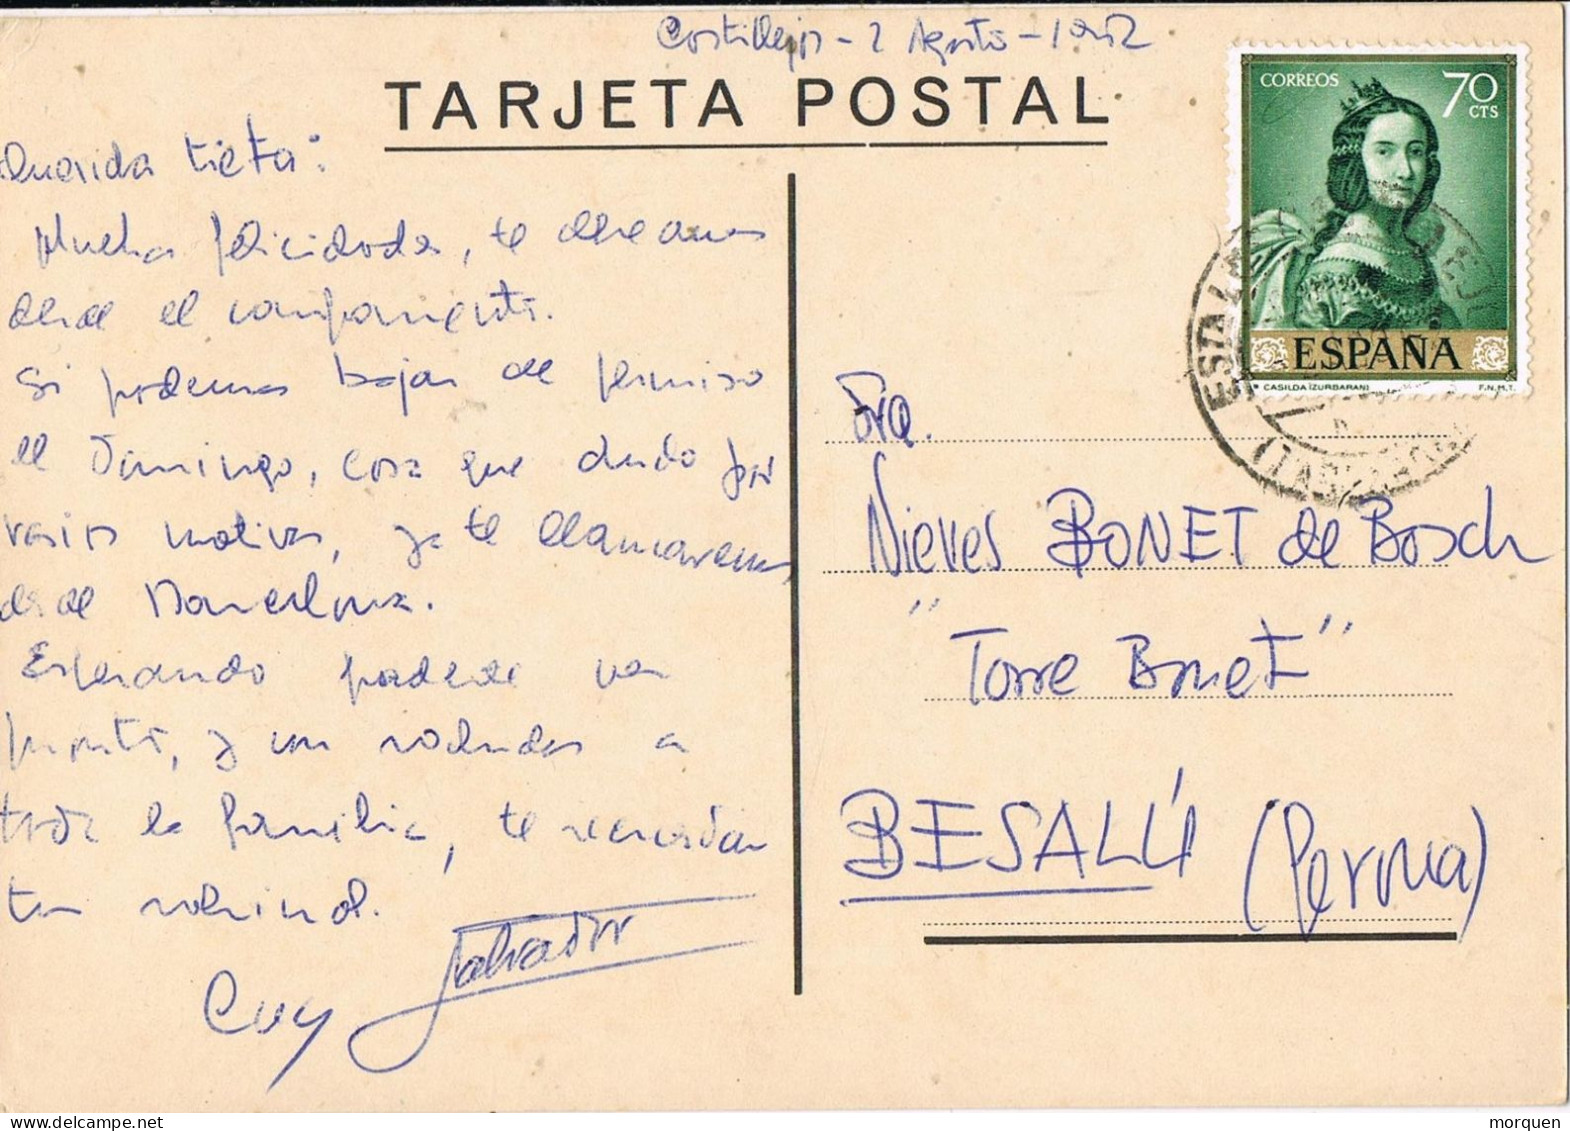 Castillejos - 2 Agosto - 1962
TARJETA POSTAL
CORREOS 70 CTS
ESPAÑA
CASILDA (ZURBARAN) F.N.M.T.
Querida tieta:
Mucha felicidades, te deseamos
desde el campamento.
Si podemos bajar de permiso
el Domingo, cosa que dudo por
varios motivos, ya te llamaremos
desde Barcelona.
Esperando poderte ver
pronto, y con saludos a
toda la familia, te recuerdan
tus
Cuy Salvador
Sra.
Nieves BONET de Bosch
"Torre Bonet"
BESALÚ (Gerona)
ESTAFETA
morquen